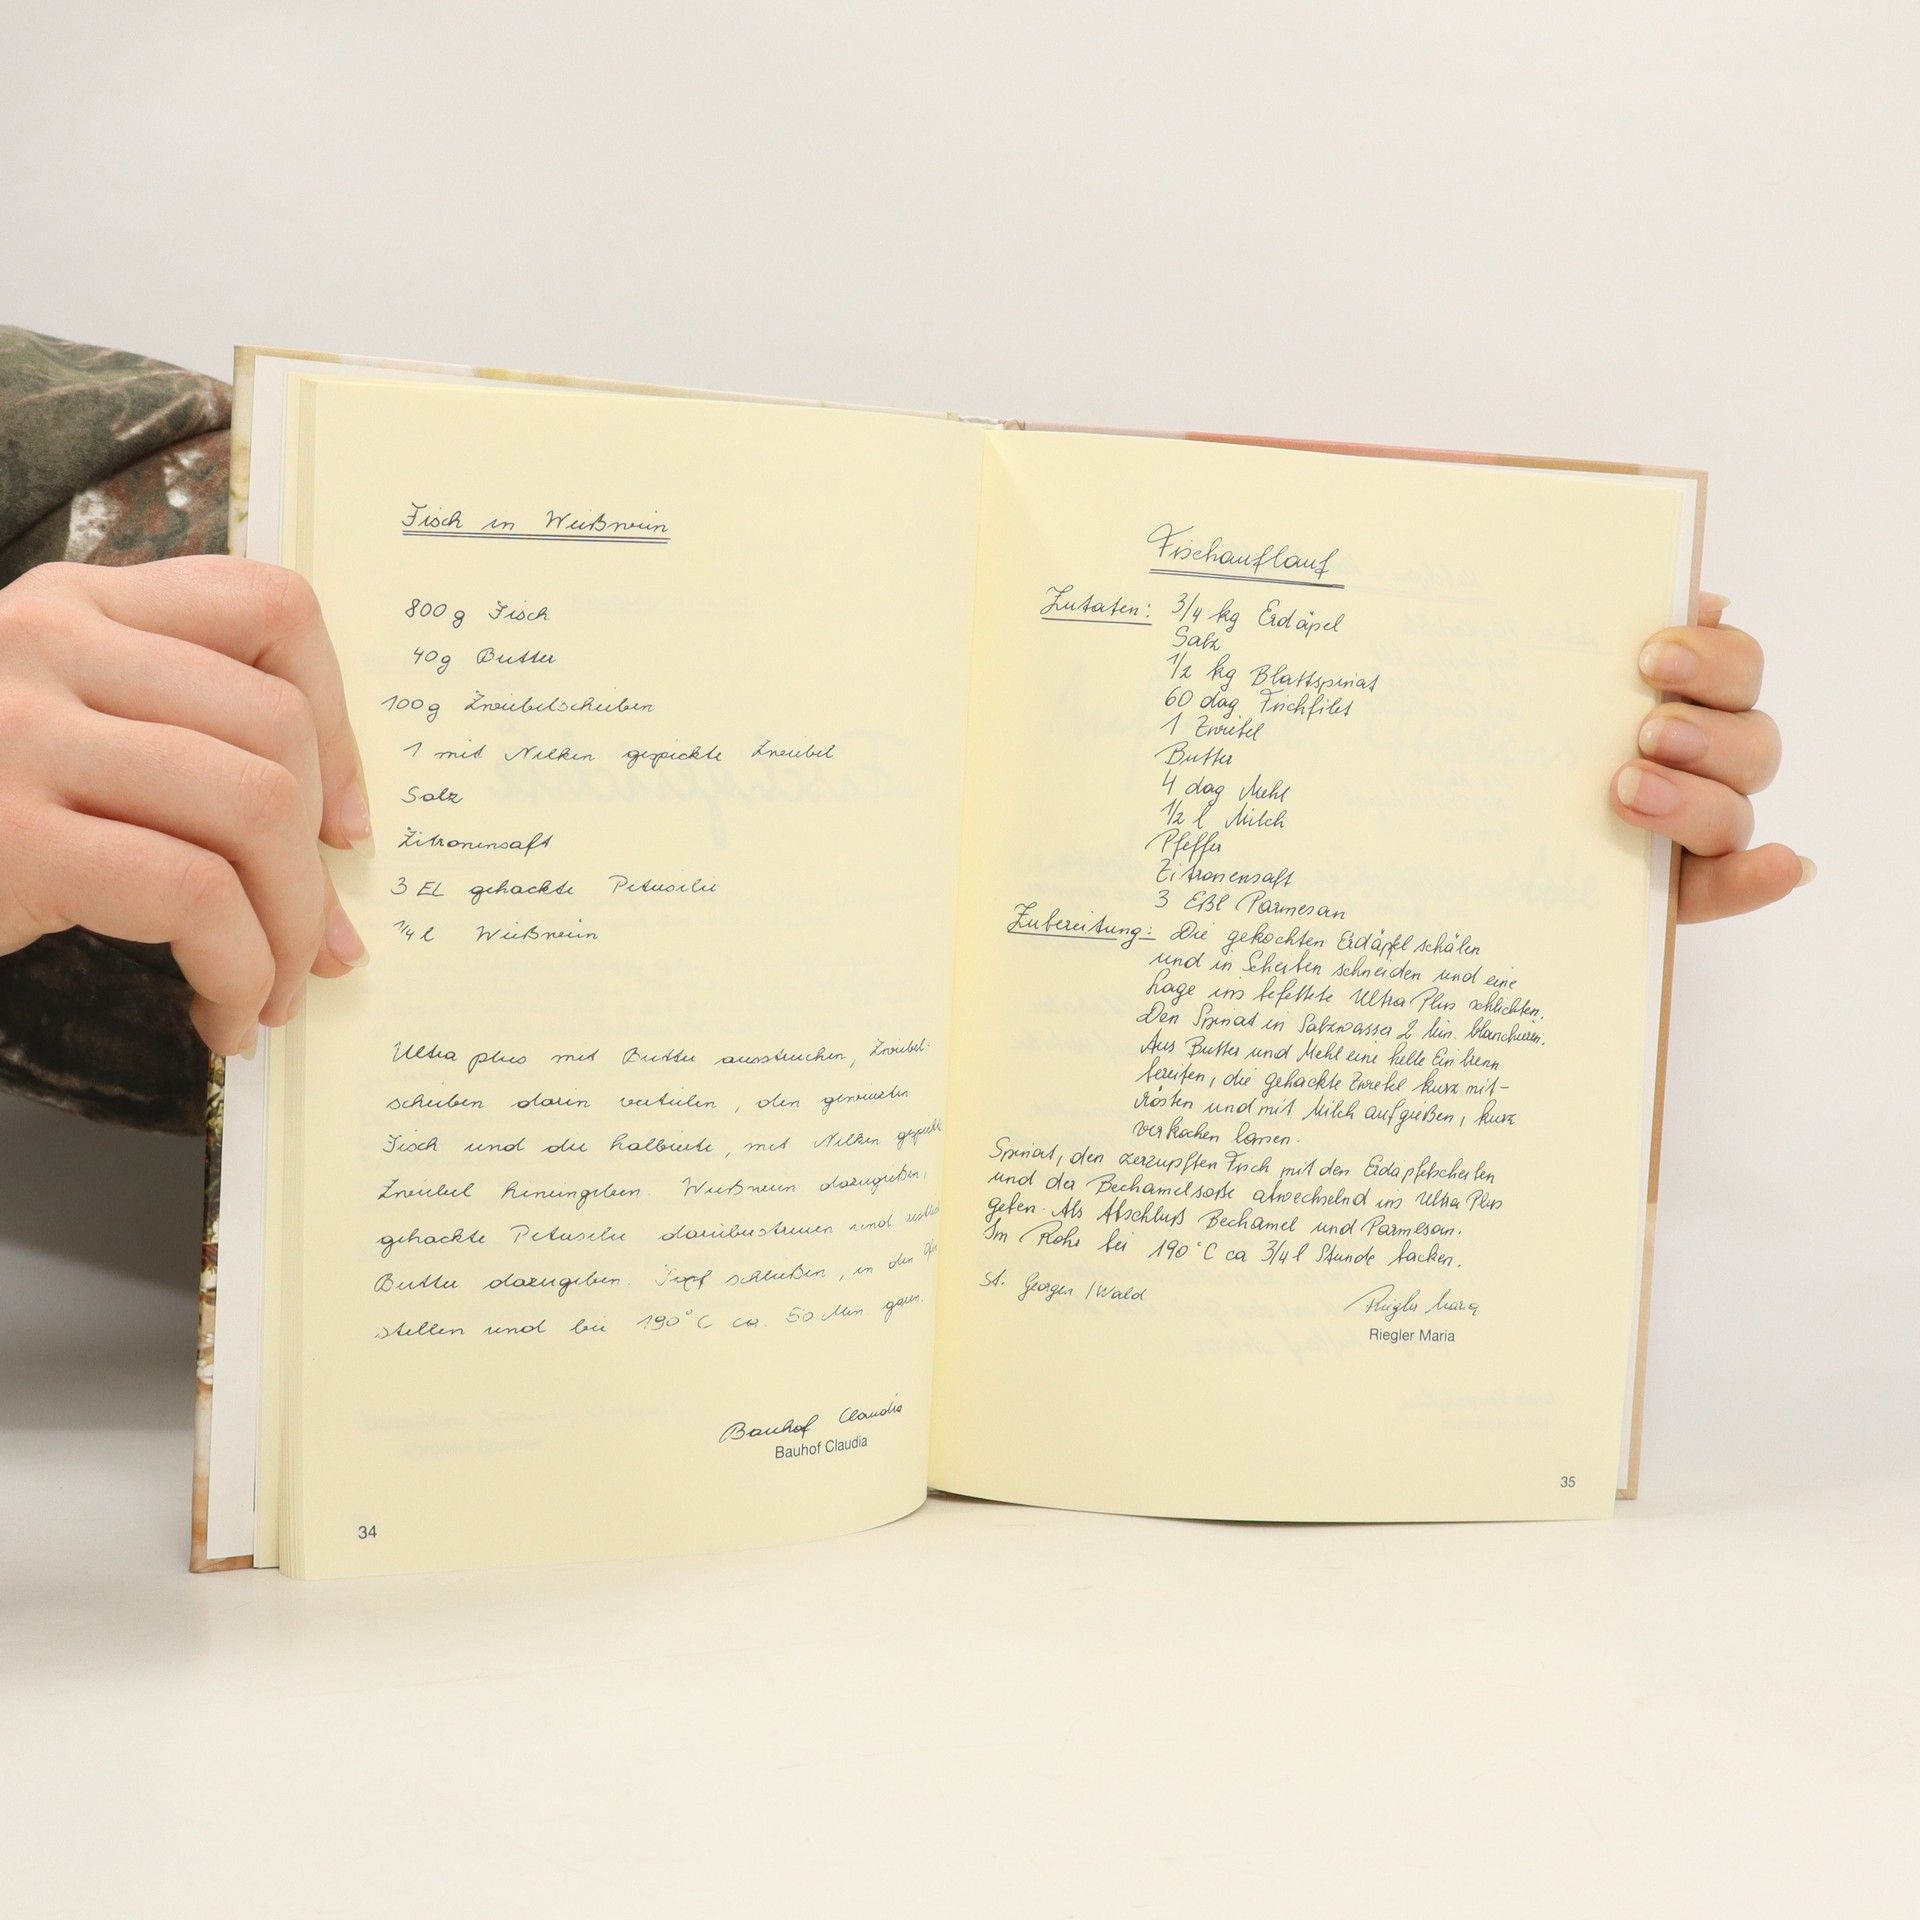 Fisch in Weißwein
800 g Fisch
40 g Butter
100 g Zwiebelscheiben
1 mit Nelken gespickte Zwiebel
Salz
Zitronensaft
3 EL gehackte Petersilie
1/4 l Weißwein
Ultra plus mit Butter ausstreichen, Zwiebel-
scheiben darin verteilen, den gewürzten
Fisch und die halbierte, mit Nelken gespickte
Zwiebel hineingeben. Weißwein dazugießen,
gehackte Petersilie darüberstreuen und
Butter dazugeben. Topf schließen, in den
stellen und bei 190°C ca. 50 Min garen.
Bauhof Claudia
Bauhof Claudia
34
Fischauflauf
Zutaten: 3/4 kg Erdäpel
Salz
1/2 kg Blattspinat
60 dag Fischfilet
1 Zwiebel
Butter
4 dag Mehl
1/2 l Milch
Pfeffer
Zitronensaft
3 Eßl Parmesan
Zubereitung: Die gekochten Erdäpfel schälen
und in Scheiben schneiden und eine
Lage ins befettete Ultra Plus schlichten.
Den Spinat in Salzwasser 2 Min. blanchieren.
Aus Butter und Mehl eine helle Einbrenn
bereiten, die gehackte Zwiebel kurz mit-
rösten und mit Milch aufgießen, kurz
verkochen lassen.
Spinat, den zerzupften Fisch mit den Erdäpfelscheiben
und der Bechamelsoße abwechselnd ins Ultra Plus
geben. Als Abschluß Bechamel und Parmesan.
Im Rohr bei 190°C ca 3/4 l Stunde backen.
St. Georgen / Wald
Riegler Maria
Riegler Maria
35